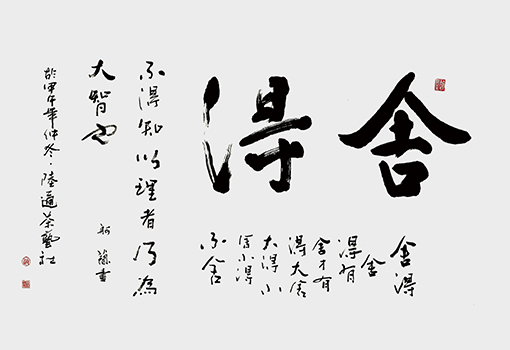 舍得
舍得
舍
得有
舍才有
得大舍
大得小
舍小得
不舍
不得知此理者乃為
大智也
書
於甲午年仲冬·陸茶藝社